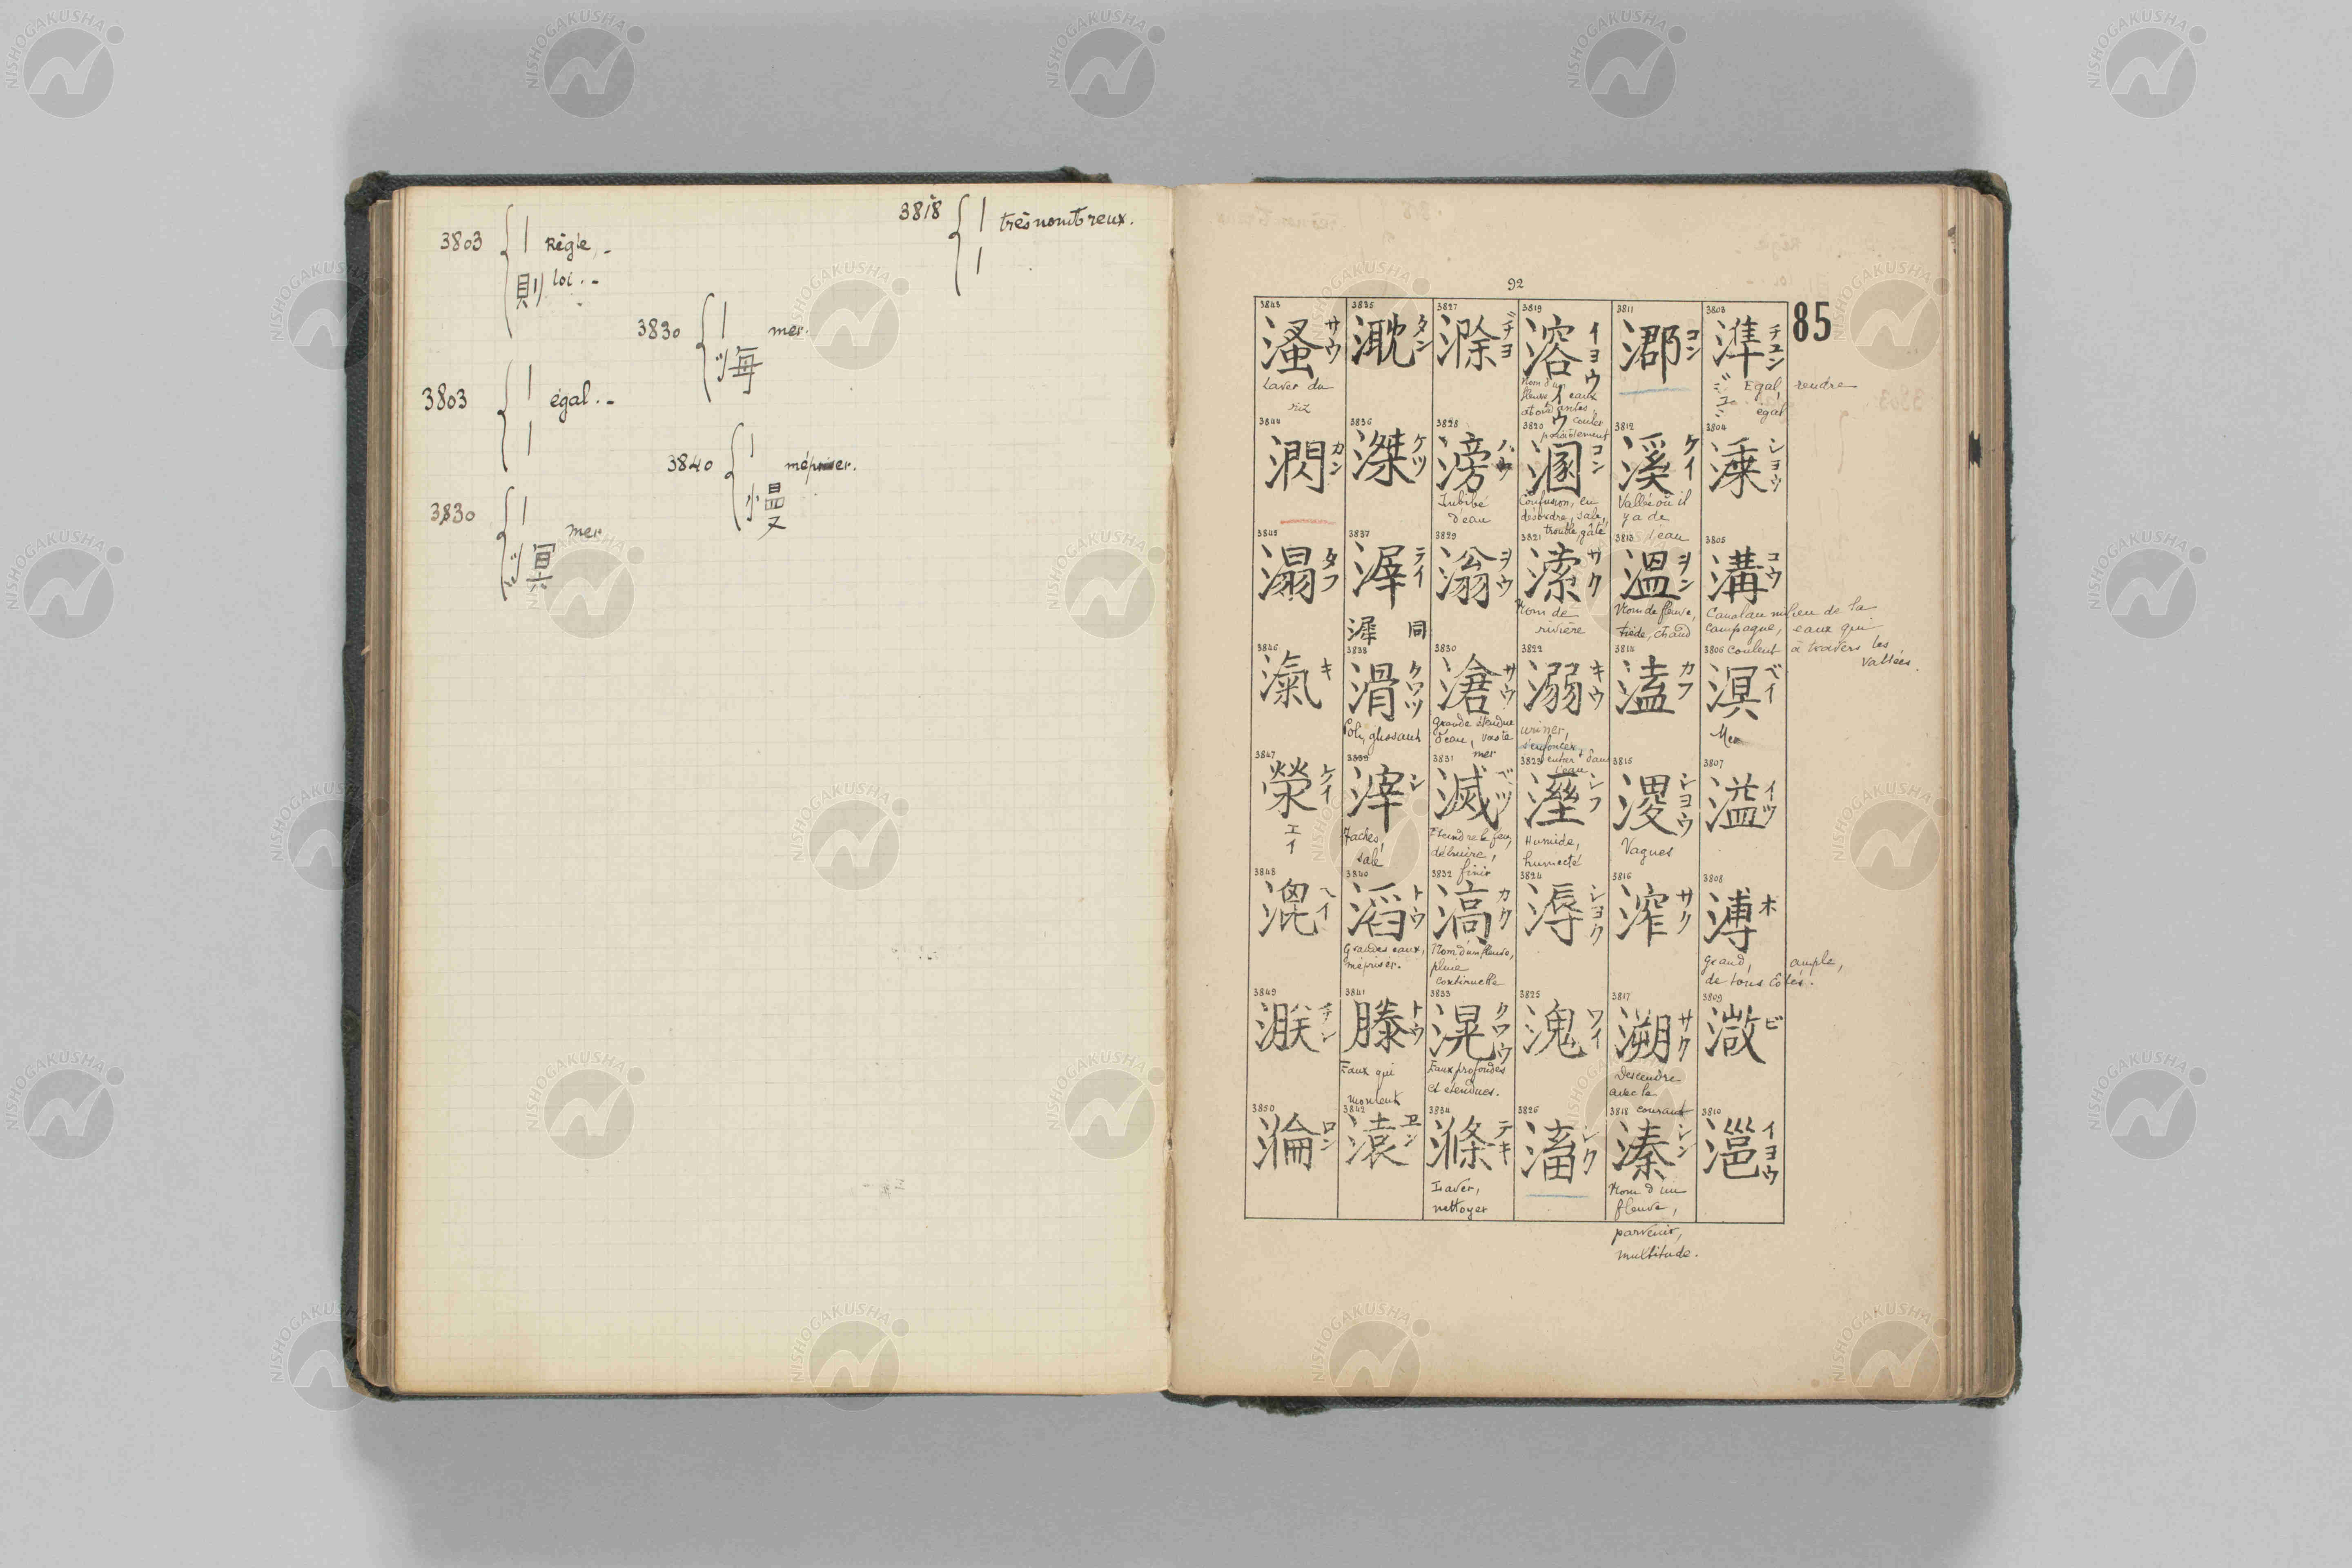 3803 { | Règle, -
則 loi. -
3803 { | égal. -
|
3830 { | mer
溟
3830 { | mer.
海
3840 { | mépriser.
慢
3818 { | très nombreux.
|
92
85
3803 準 チユン
Egal, rendre
égal
3804 溗 シヨウ
3805 溝 コウ
Canal au milieu de la
campagne, eaux qui
coulent à travers les
vallées.
3806 溟 ベイ
Mer
3807 溢 イツ
3808 溥 ホ
grand, ample,
de tous côtés.
3809 溦 ビ
3810 滋 イヨウ
3811 溷 コン
3812 溪 ケイ
Vallée où il
y a de
l'eau
3813 溫 ヲン
Nom de fleuve,
tiède, chaud
3814 溘 カフ
3815 溭 シヨウ
Vagues
3816 溠 サク
3817 溯 サク
Descendre
avec le
courant
3818 溱 シン
Nom d'un
fleuve,
parvenir,
multitude.
3819 溶 イヨウ
Nom d'un
fleuve, eaux
abondantes,
couler
paisiblement
3820 溷 コン
Confusion, en
désordre, sale,
trouble, gâté
3821 溹 サク
Nom de
rivière
3822 溺 キウ
uriner,
s'enfoncer,
entrer dans
l'eau
3823 溼 シフ
Humide,
humecté
3824 溽 シヨク
3825 溾 ワイ
3826 滀 シク
3827 滁 ヂヨ
3828 滂 ハウ
Imbibé
d'eau
3829 滃 ヲウ
3830 滄 サウ
Grande étendue
d'eau, vaste
mer
3831 滅 ベツ
Eteindre le feu,
détruire,
finir
3832 滈 カク
Nom d'un fleuve,
pluie
continuelle
3833 滉 クワウ
Eaux profondes
et étendues.
3834 滌 テキ
Laver,
nettoyer
3835 タン
3836 滐 ケツ
3837 滓 テイ
同
3838 滑 クワツ
Poli, glissant
3839 滓 シ
Taches,
sale
3840 滔 トウ
Grandes eaux,
mépriser.
3841 滕 トウ
Eaux qui
montent
3842 溒 ヱン
3843 溞 サウ
Laver du
riz
3844 カン
3845 溻 タフ
3846 滊 キ
3847 滎 ケイ
エイ
3848 ヘイ
3849 チン
3850 ロン